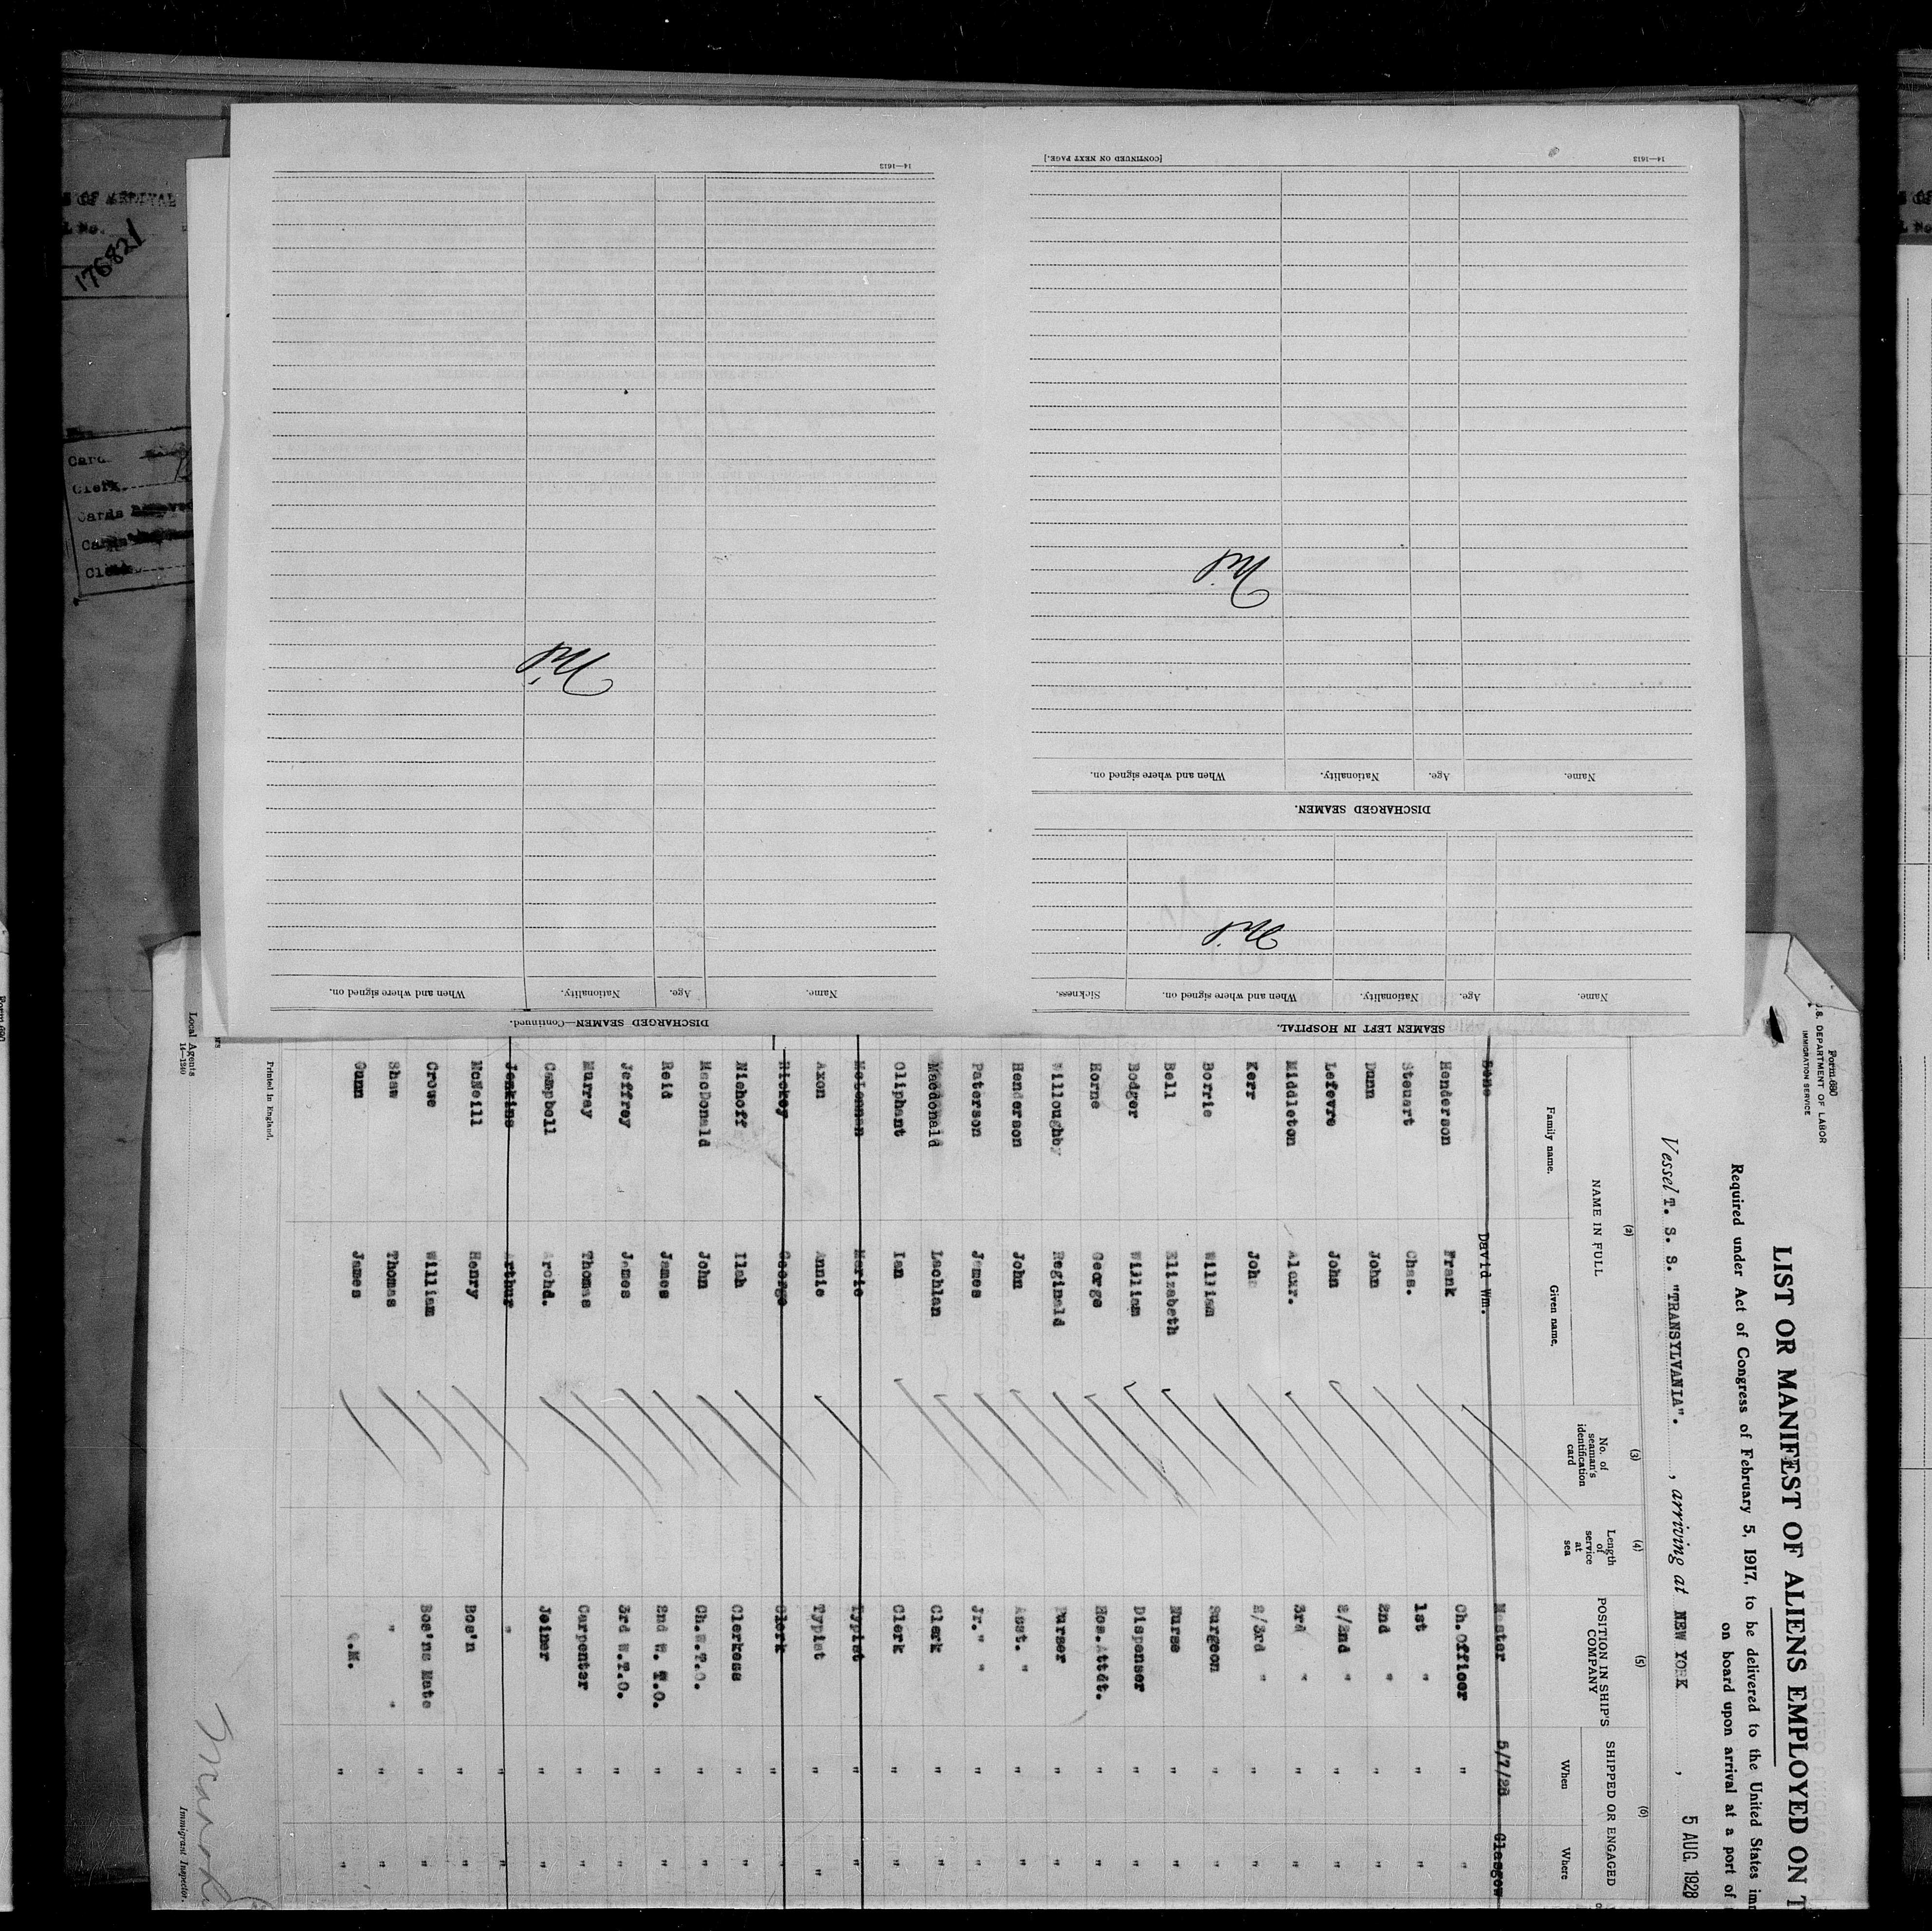 176821
14—1613
[CONTINUED ON NEXT PAGE.]
14—1613
SEAMEN LEFT IN HOSPITAL.
Name. Age. Nationality. When and where signed on. Sickness.
Nil
DISCHARGED SEAMEN.
Name. Age. Nationality. When and where signed on.
Nil
DISCHARGED SEAMEN—Continued.
Name. Age. Nationality. When and where signed on.
Nil
Form 690
U.S. DEPARTMENT OF LABOR
IMMIGRATION SERVICE
LIST OR MANIFEST OF ALIENS EMPLOYED ON T
Required under Act of Congress of February 5, 1917, to be delivered to the United States im
on board upon arrival at a port of
Vessel T. S. S. "TRANSYLVANIA". , arriving at NEW YORK , 5 AUG. 1928
(2) (3) (4) (5) (6)
NAME IN FULL
Family name. Given name.
No. of seaman's identification card
Length of service at sea
POSITION IN SHIP'S COMPANY
SHIPPED OR ENGAGED
When Where
Bone David Wm. Master 5/7/28 Glasgow
Henderson Frank Ch. Officer " "
Steuart Chas. 1st " " "
Dunn John 2nd " " "
Lefevre John 2/2nd " " "
Middleton Alexr. 3rd " " "
Kerr John 2/3rd " " "
Borrie William Surgeon " "
Bell Elizabeth Nurse " "
Bodger William Dispenser " "
Horne George Hos. Attdt. " "
Willoughby Reginald Purser " "
Henderson John Asst. " " "
Paterson James Jr. " " " "
Macdonald Lachlan Clerk " "
Oliphant Ian Clerk " "
McLennan Marie Typist " "
Axon Annie Typist " "
Rickey George Clerk " "
Niehoff Ilah Clerkess " "
MacDonald John Ch. W.T.O. " "
Reid James 2nd W. T.O. " "
Jeffrey James 3rd W.T.O. " "
Murray Thomas Carpenter " "
Campbell Archd. Joiner " "
Jenkins Arthur " " "
McNeill Henry Bos'n " "
Crowe William Bos'ns Mate " "
Shaw Thomas " " " "
Gunn James Q.M. " "
Printed in England.
Local Agents
14—1240
Immigrant Inspector.